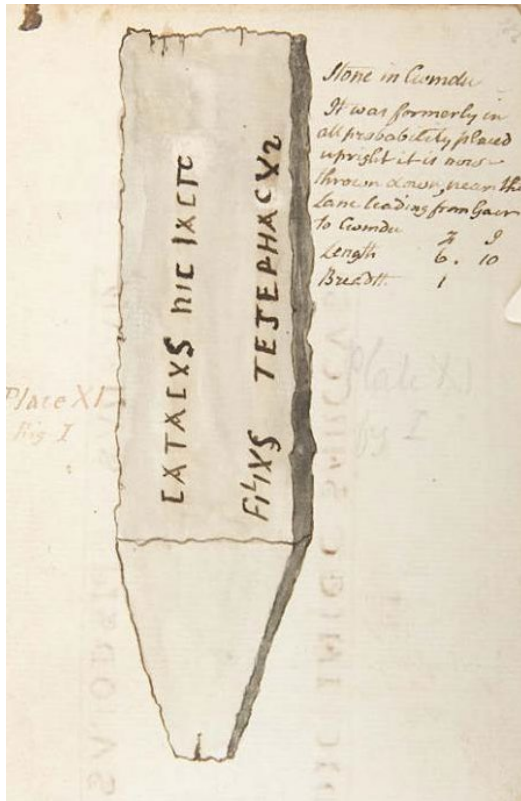 CATACXS hIC IACTC
FILIXS TESEPHACX2
Stone in Cwmdu
It was formerly in
all probability placed
upright it is now
thrown down, near the
Lane leading from Gaer
to Cwmdu F I
Length 6. 10
Breadth 1
Plate XI
Fig I
Plate XI
fig I